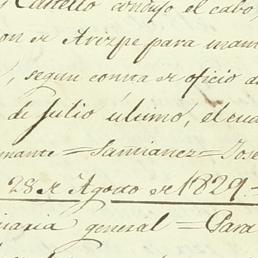 Castillo condujo el cabo,
on de Arizpe para man
, segun consta de oficio d
de Julio último, el cua
mante = Santianez = Jose
28 de Agosto de 1829
general = Para